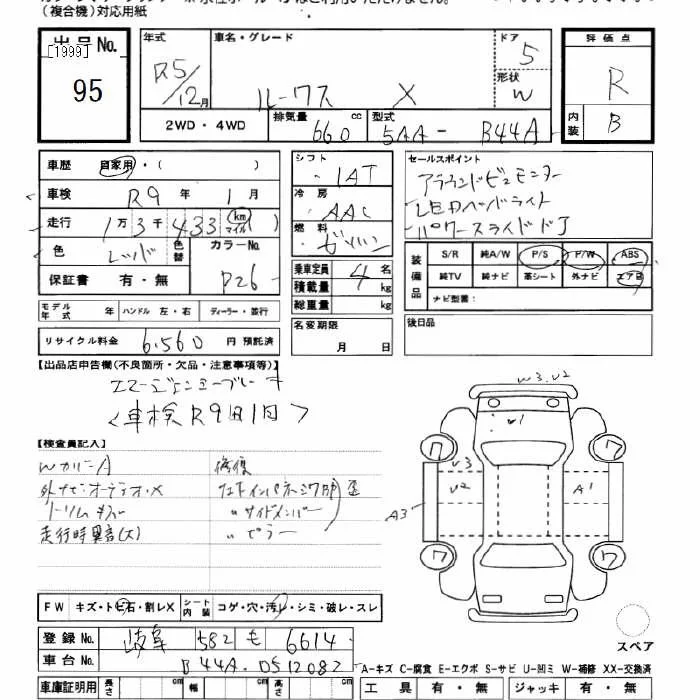 （複合機）対応用紙
出品No.
[1999]
95
年式 車名・グレード ドア 5
R5/12月 ルークス X 形状 W
2WD・4WD 排気量 660 cc 型式 5AA- B44A
評価点
R
内装 B
車歴 自家用・（ ）
車検 R9 年 1 月
走行 1万3千433 km マイル
色 レッド 色替 カラーNo.
保証書 有・無 P26
モデル年式 年 ハンドル 左・右 ディーラー・並行
リサイクル料金 6,560 円 預託済
シフト IAT
冷房 AAC
燃料 ガソリン
乗車定員 4 名
積載量 kg
総重量 kg
名変期限
月 日
セールスポイント
アラウンドビューモニター
LEDヘッドライト
パワースライドドア
装備品 S/R 純A/W P/S P/W ABS
純TV 純ナビ 革シート 外ナビ エアB
ナビ型番：
後日品
【出品店申告欄（不良箇所・欠品・注意事項等）】
エマージェンシーブレーキ
＜車検R9年1月＞
【検査員記入】
Wカバー A 修復
外ナビ・オーディオ・X
トリム キズ 〃サイドメンバー
走行時異音(大) 〃ピラー
歪
FW キズ・トビ石・割レX シート内装 コゲ・穴・汚レ・シミ・破レ・スレ
登録No. 岐阜 582 も 6614
車台No. B44A-0512087
車庫証明用 長さ cm 幅 cm 高さ cm
W3.V2
W1
ワ ワ
V3
V2 A1
A3
ワ ワ
スペア
A-キズ C-腐食 E-エクボ S-サビ U-凹ミ W-補修 XX-交換済
工具 有・無 ジャッキ 有・無